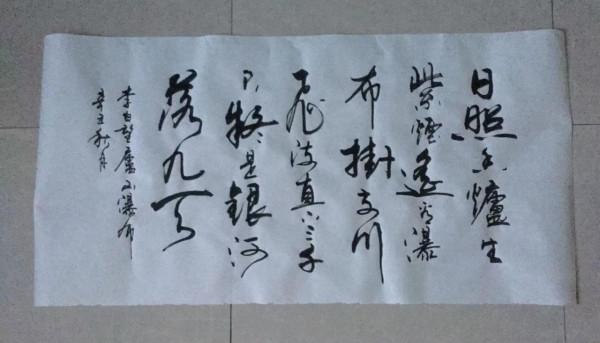 日照香爐生
紫煙遙看瀑
布掛前川
飛流直下三千
尺疑是銀河
落九天
李白望廬山瀑布
辛丑秋月